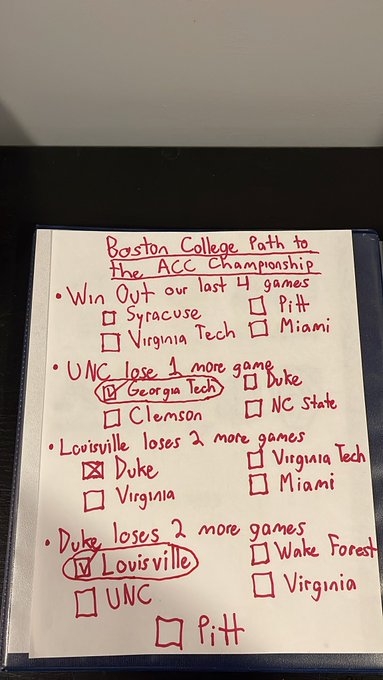 Boston College Path to
the ACC Championship
• Win Out our last 4 games
Syracuse Pitt
Virginia Tech Miami
• UNC lose 1 more game
Georgia Tech Duke
Clemson NC State
• Louisville loses 2 more games
Duke Virginia Tech
Virginia Miami
• Duke loses 2 more games
Louisville Wake Forest
UNC Virginia
Pitt